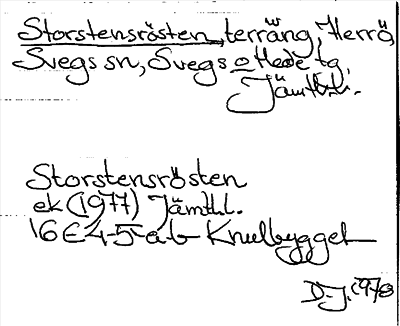 Storstensrösten, terräng, Herrö,
Svegs sn, Svegs o Hede tg,
Jämtl.l.
Storstensrösten
ek (1977) Jämtl.l.
16E4-5a-b Knulbygget
D.J. 1978